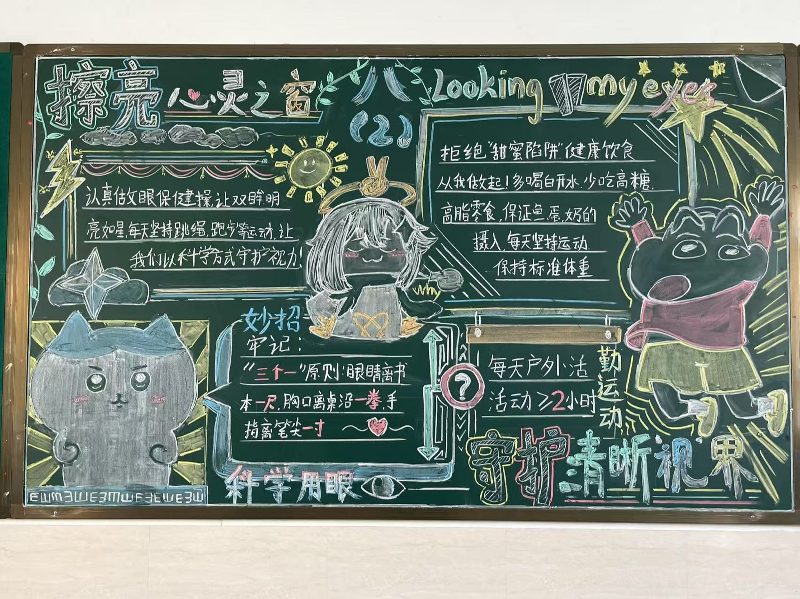 擦亮心灵之窗
八
(2)
Looking my eyes
认真做眼保健操,让双眸明
亮如星每天坚持跳绳,跑步等运动,让
我们以科学方式守护视力!
拒绝"甜蜜陷阱"健康饮食
从我做起!多喝白开水,少吃高糖.
高脂零食,保证鱼,蛋,奶的
摄入每天坚持运动
保持标准体重
Why
妙招
牢记:
"三个一"原则:眼睛离书
本一尺,胸口离桌沿一拳,手
指离笔尖一寸
?
每天户外活
活动≥2小时
勤运动
科学用眼
守护清晰视界